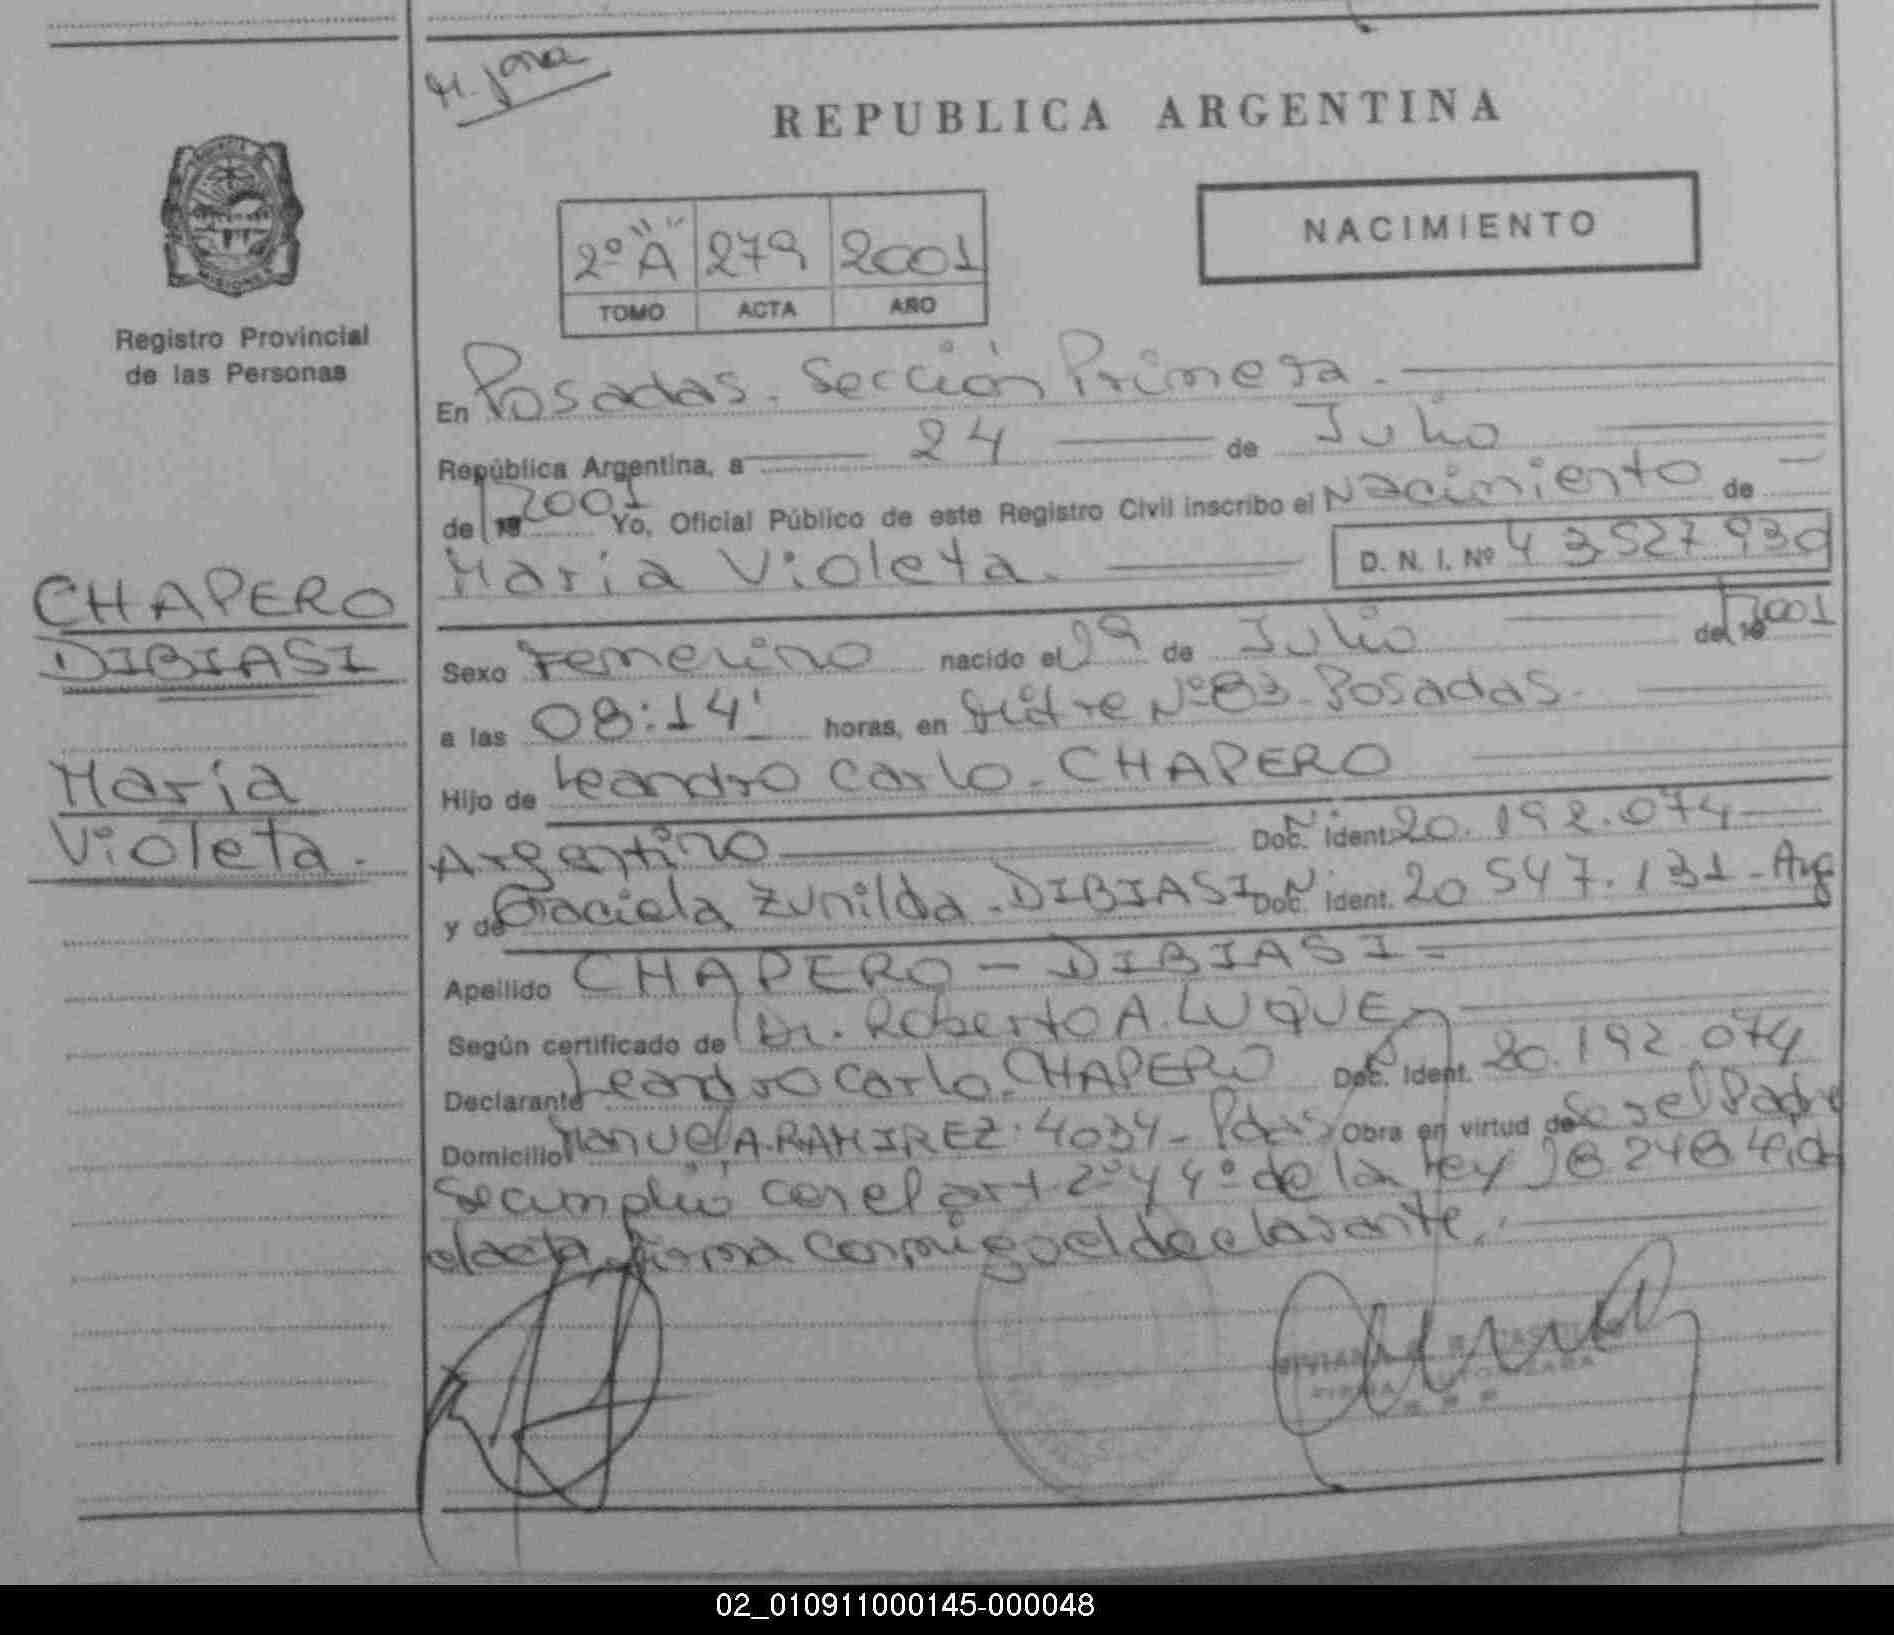 H. jona
REPUBLICA ARGENTINA
NACIMIENTO
2º "A" 279 2001
TOMO ACTA AÑO
Registro Provincial
de las Personas
En Posadas. Sección Primera.
República Argentina, a 24 de Julio
de 19 2001 Yo, Oficial Público de este Registro Civil inscribo el Nacimiento de
María Violeta. D. N. I. Nº 43527930
CHAPERO
DIBIASI
María
Violeta.
Sexo Femenino nacido el 19 de Julio de 19 2001
a las 08:14' horas, en Mitre Nº 83. Posadas.
Hijo de Leandro Carlo. CHAPERO
Argentino Doc. Ident. 20.192.074
y de Graciela Zunilda. DIBIASI Doc. Ident. 20 547.131 - Arg
Apellido CHAPERO - DIBIASI -
Según certificado de Dr. Roberto A. LUQUE
Declarante Leandro Carlo. CHAPERO Doc. Ident. 20.192.074
Domicilio Manuel A. RAMIREZ. 4034 - Pdas Obra en virtud de Ser el Padre
Se cumplió con el art. 2º y 4º de la Ley 18248
el acta, firma conmigo el declarante.
02_010911000145-000048